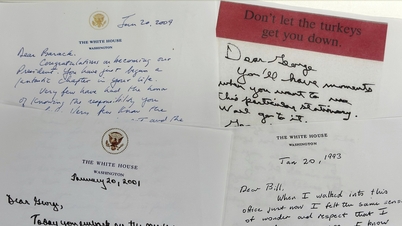 THE WHITE HOUSE
WASHINGTON
Jan 20, 2009
Dear Barack,
Congratulations on becoming our
President. You have just begun a
fantastic chapter in your life.
Very few have had the honor
of knowing the responsibility you
Very few know the
and the
Don't let the turkeys
get you down.
Dear George
You'll have moments
when you want to use
this particular stationery.
Well go to it.
THE WHITE HOUSE
WASHINGTON
January 20, 2001
Dear George,
Today you embark on the
THE WHITE HOUSE
WASHINGTON
Jan 20, 1993
Dear Bill,
When I walked into this
office just now I felt the same sense
of wonder and respect that I
I know